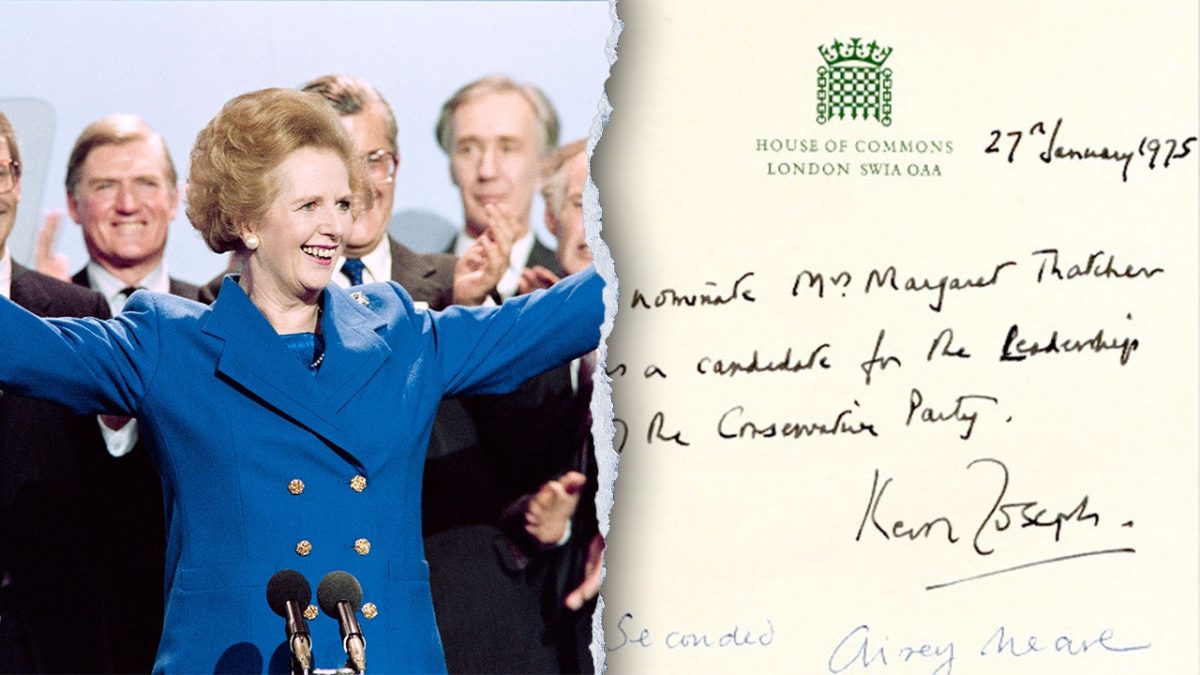 HOUSE OF COMMONS
LONDON SW1A OAA
27th January 1975
nominate Mrs. Margaret Thatcher
s a candidate for the Leadership
the Conservative Party.
Keith Joseph.
Seconded Airey Neave